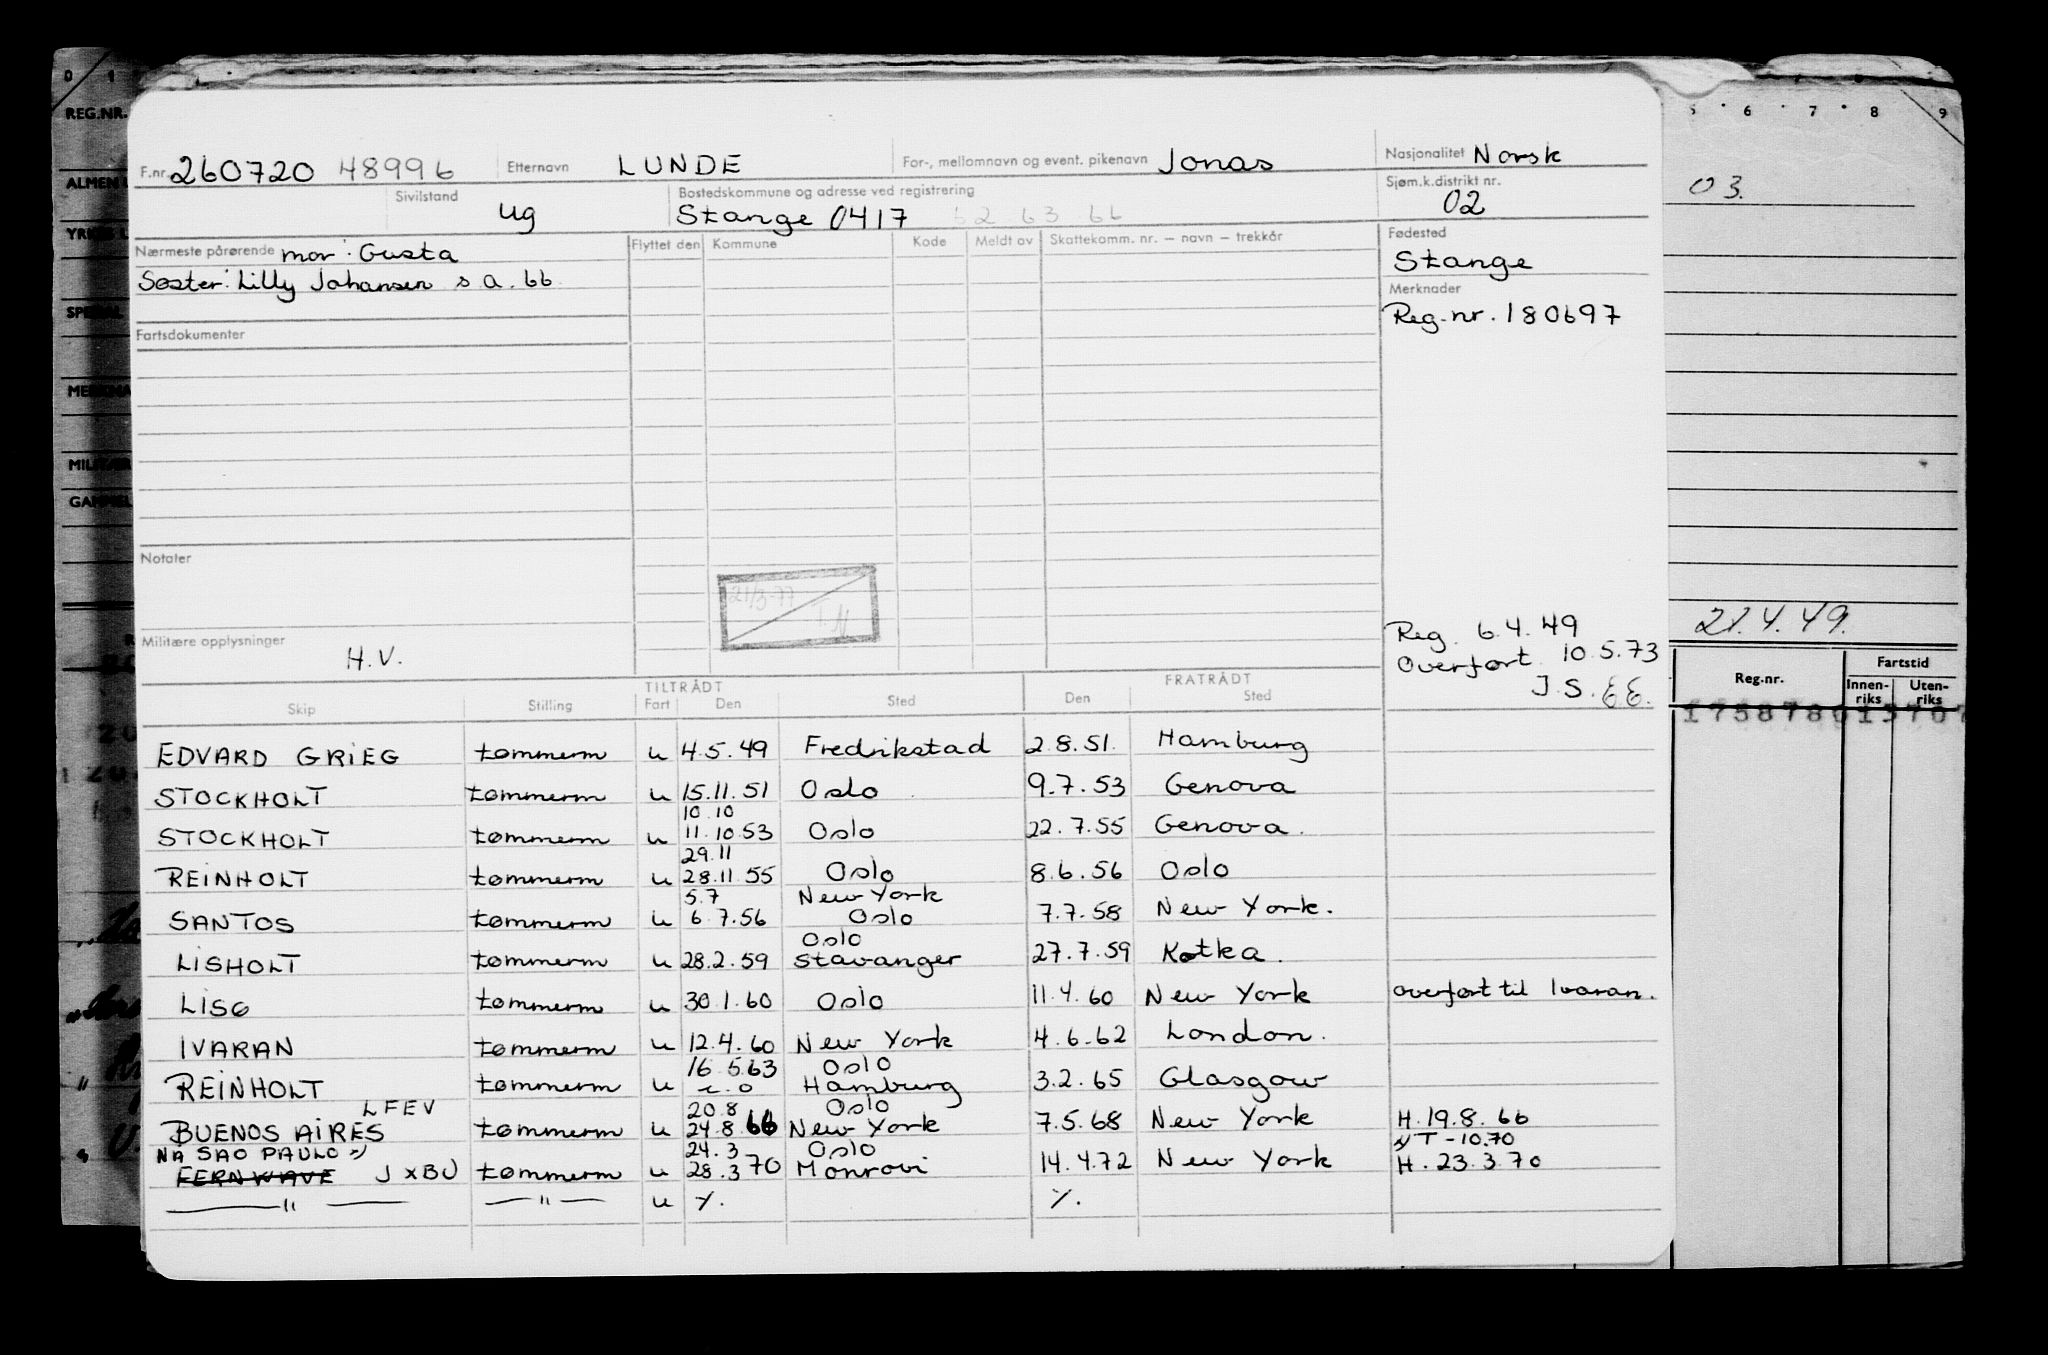 F.nr. 260720 48996 Etternavn LUNDE For-, mellomnavn og event. pikenavn Jonas Nasjonalitet Norsk
Sivilstand ug Bostedskommune og adresse ved registrering Stange 0417 Sjøm.k.distrikt nr. 02
Nærmeste pårørende mor: Gusta Flyttet den Kommune Kode Meldt av Skattekomm. nr. – navn – trekkår Fødested Stange
Søster: Lilly Johansen s.a. 66
Merknader
Reg.nr. 180697
Fartsdokumenter
Notater
21/3-77
Militære opplysninger H.V.
Reg. 6.4.49
Overført 10.5.73
J.S.
TILTRÅDT FRATRÅDT
Skip Stilling Fart Den Sted Den Sted
EDVARD GRIEG tømmerm u 4.5.49 Fredrikstad 2.8.51. Hamburg
STOCKHOLT tømmerm u 15.11.51 Oslo 9.7.53 Genova
10.10
STOCKHOLT tømmerm u 11.10.53 Oslo 22.7.55 Genova.
29.11
REINHOLT tømmerm u 28.11.55 Oslo 8.6.56 Oslo
5.7 New York
SANTOS tømmerm u 6.7.56 Oslo 7.7.58 New York.
Oslo
LISHOLT tømmerm u 28.2.59 Stavanger 27.7.59 Kotka.
LISG tømmerm u 30.1.60 Oslo 11.4.60 New York overført til Ivaran.
IVARAN tømmerm u 12.4.60 New York 4.6.62 London.
16.5.63 Oslo
REINHOLT tømmerm u Hamburg 3.2.65 Glasgow
LFEV 20.8 Oslo
BUENOS AIRES tømmerm u 24.8.66 New York 7.5.68 New York H.19.8.66
NÅ SAO PAULO 24.3 Oslo NT-10.70
FERNWAVE JXBU tømmerm u 28.3 70 Monrovi 14.4.72 New York H. 23.3.70
—"— —"— u ٪. ٪.
0 1
REG.NR.
6 7 8 9
03.
21.4.49.
Reg.nr. Fartstid
Innen-riks Uten-riks